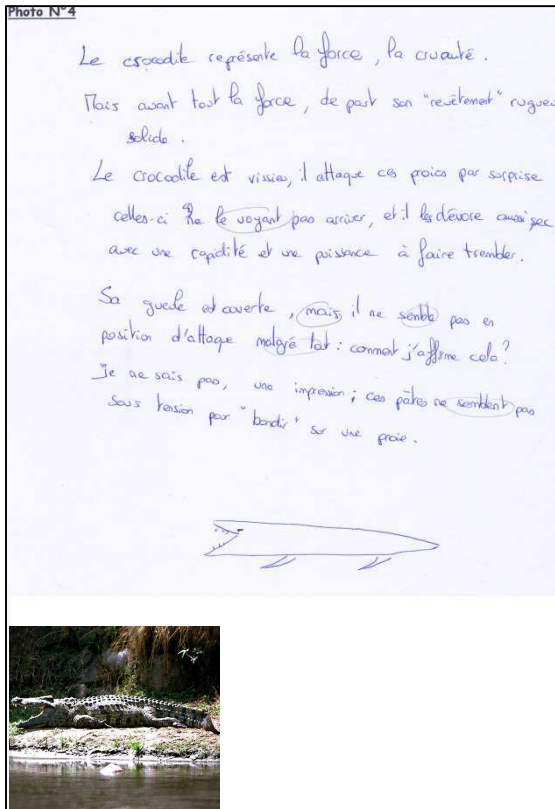 Photo N°4
Le crocodile représente la force, la cruauté.
Mais avant tout la force, de part son "revêtement" rugueu
solide.
Le crocodile est vissieu, il attaque ces proies par surprise
celles-ci ne le voyant pas arriver, et il les dévore aussi sec
avec une rapidité et une puissance à faire trembler.
Sa gueule est ouverte, mais, il ne semble pas en
position d'attaque malgré tout : comment j'affirme cela ?
Je ne sais pas, une impression ; ces pâtes ne semblent pas
sous tension pour "bondir" sur une proie.